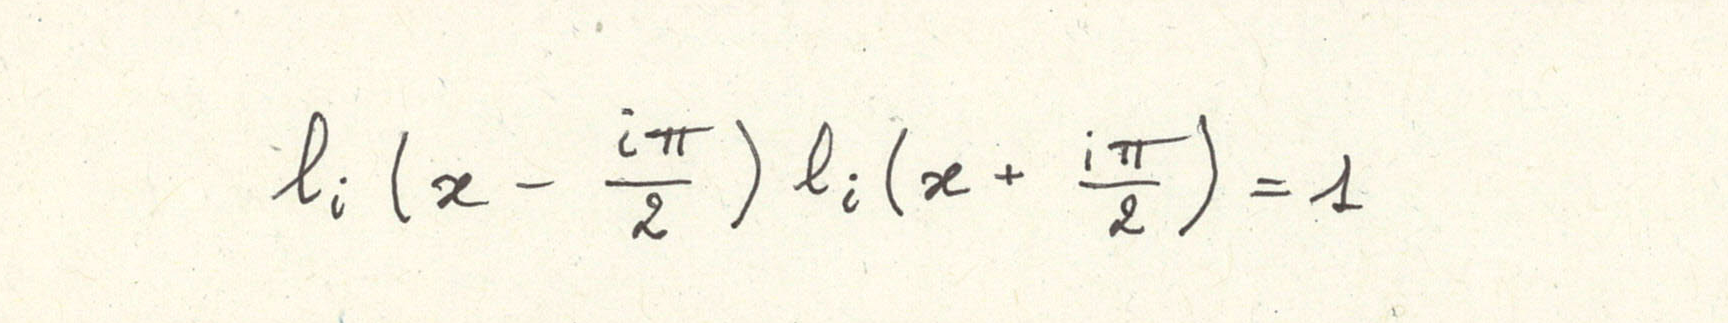 l_i (x - \frac{iπ}{2}) l_i (x + \frac{iπ}{2}) = 1